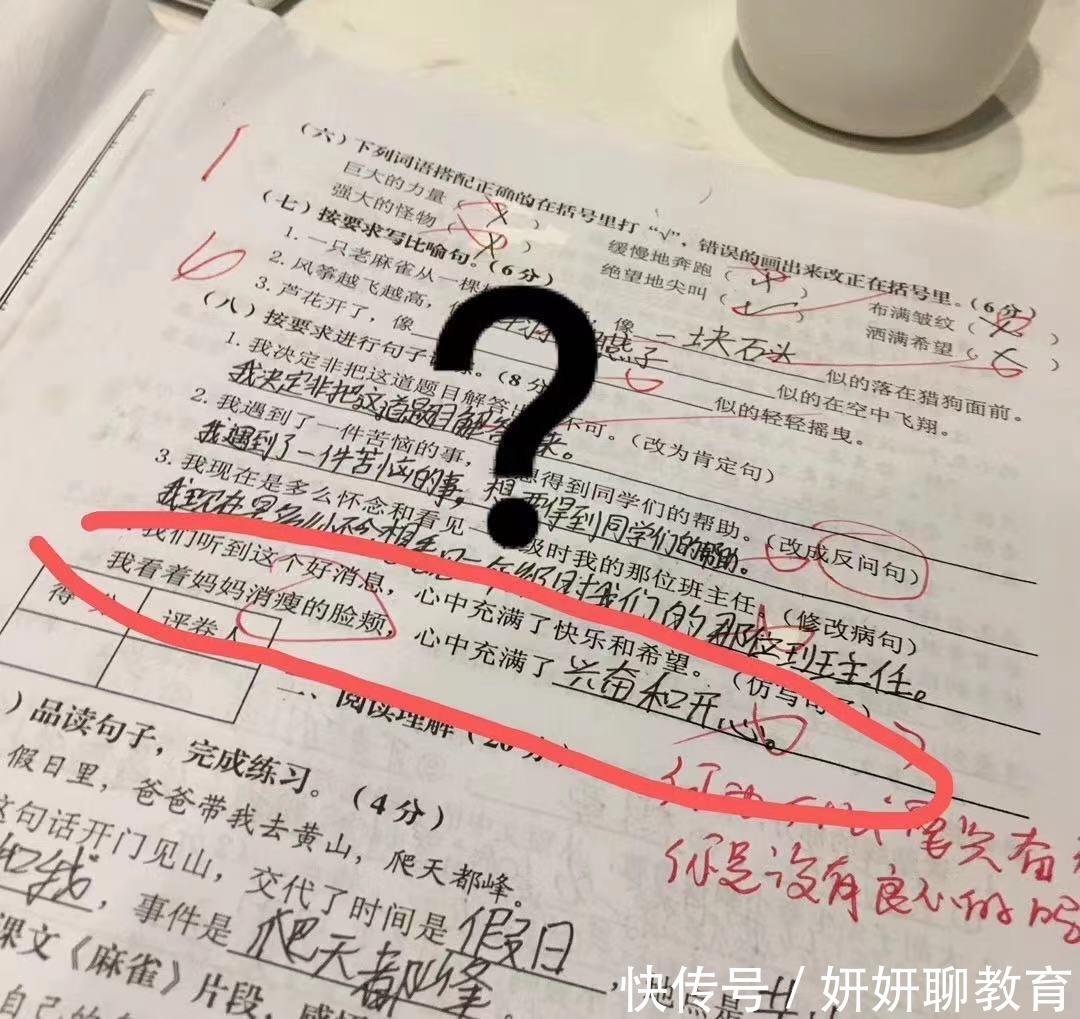 1
(六)下列词语搭配正确的在括号里打“√”,错误的画出来改正在括号里。(6分)
巨大的力量( ) 缓慢地奔跑( ) 布满皱纹( )
强大的怪物( ) 绝望地尖叫( ) 洒满希望( )
6
(七)按要求写比喻句。(6分)
1.一只老麻雀从一棵 像一块石头似的落在猎狗面前。
2.风筝越飞越高, 燕子似的在空中飞翔。
3.芦花开了,像 似的轻轻摇曳。
(八)按要求进行句子 。(8分
1.我决定非把这道题目解答出 不可。(改为肯定句)
我决定非把这道题目解答 来。
2.我遇到了一件苦恼的事, 想得到同学们的帮助。(改成反问句)
我遇到了一件苦恼的事, 得到同学们的帮助。
3.我现在是多么怀念和看见一 级时我的那位班主任。(修改病句)
我现在是多么 时我们的那位班主任。
我们听到这个好消息,心中充满了快乐和希望。(仿写句子)
我看着妈妈消瘦的脸颊,心中充满了兴奋和开心。
得 分 评卷人
二、阅读理解(20分)
笑兴奋
你是没有良心的吗
)品读句子,完成练习。(4分)
假日里,爸爸带我去黄山,爬天都峰。
这句话开门见山,交代了时间是假日
和我,事件是爬天都峰,地点是
课文《麻雀》片段,
自己的
快传号 / 妍妍聊教育